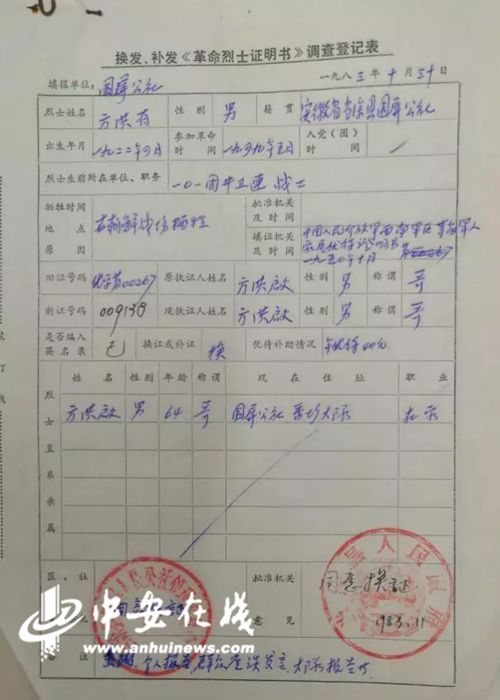 换发、补发《革命烈士证明书》调查登记表
填报单位：圆屏公社 一九八三年十月31日
烈士姓名 方洪有 性别 男 籍贯 安徽省寿县圆屏公社
出生年月 一九二二年 月 参加革命时间 一九四九年五月 入党（团）时间
烈士生前所在单位、职务 一0一团 连 战士
牺牲时间 地点 原因 在朝鲜战场牺牲
批准机关及时间
填证机关及时间 中国人民解放军西南军区革命军人家属优待证明书 一九五0年十月
旧证号码 字第00267 原执证人姓名 方洪啟 性别 男 称谓 哥
新证号码 009130 现执证人姓名 方洪啟 性别 男 称谓 哥
是否编入英名录 已 换证或补证 换 优待补助情况 40元
烈士直系亲属
姓名 性别 年龄 称谓 现在住址 职业
方洪啟 男 64 哥 圆屏公社 大队 社员
区、社意见
批准机关意见 同意换证
1983.11
人民政府
备注 个人报告 群众座谈发言 大队报告
中安在线
www.anhuinews.com